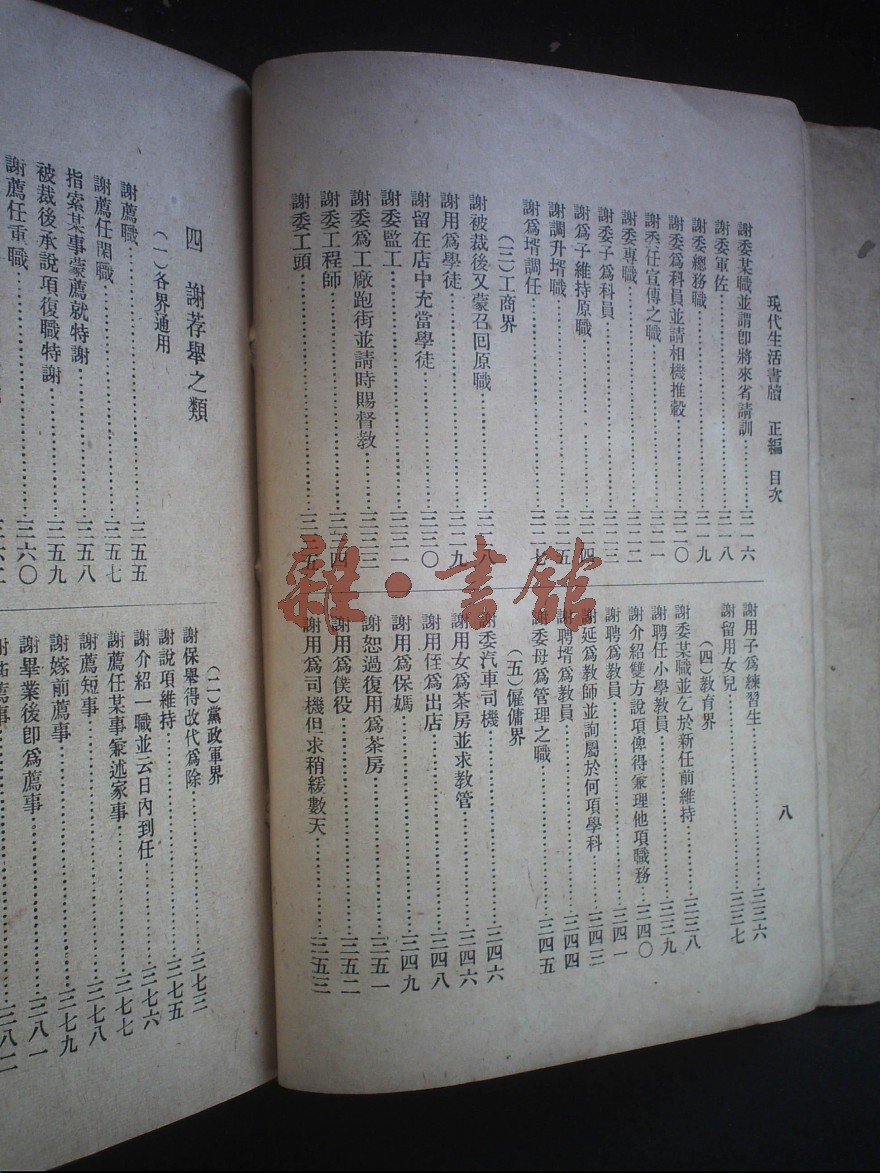 現代生活書牘 正編 目次
八
謝委某職並謂卽將來省請訓 三一六
謝委軍佐 三一八
謝委總務職 三一九
謝委爲科員並請相機推轂 三二〇
謝委任宣傳之職 三二一
謝委專職 三二二
謝委子爲科員 三二三
謝爲子維持原職 三二四
謝調升壻職 三二五
謝爲壻調任 三二七
(三)工商界
謝被裁後又蒙召回原職 三二八
謝用爲學徒 三二九
謝留在店中充當學徒 三三〇
謝委監工 三三一
謝委爲工廠跑街並請時賜督教 三三三
謝委工程師 三三四
謝委工頭 三三五
謝用子爲練習生 三三六
謝留用女兒 三三七
(四)教育界
謝委某職並乞於新任前維持 三三八
謝聘任小學教員 三三九
謝介紹雙方說項俾得兼理他項職務 三四〇
謝聘爲教員 三四一
謝延爲教師並詢屬於何項學科 三四三
謝聘壻爲教員 三四四
謝委母爲管理之職 三四五
(五)僱傭界
謝委汽車司機 三四六
謝用女爲茶房並求教管 三四六
謝用侄爲出店 三四八
謝用爲保媽 三四九
謝恕過復用爲茶房 三五一
謝用爲僕役 三五二
謝用爲司機但求稍緩數天 三五三
雜·書館
四 謝荐舉之類
(一)各界通用
謝薦職 三五五
謝薦任閑職 三五七
指索某事蒙薦就特謝 三五八
被裁後承說項復職特謝 三五九
謝薦任重職 三六〇
(二)黨政軍界
謝保舉得改代爲除 三七三
謝說項維持 三七五
謝介紹一職並云日內到任 三七六
謝薦任某事兼述家事 三七七
謝薦短事 三七八
謝嫁前薦事 三七九
謝畢業後卽爲薦事 三八一